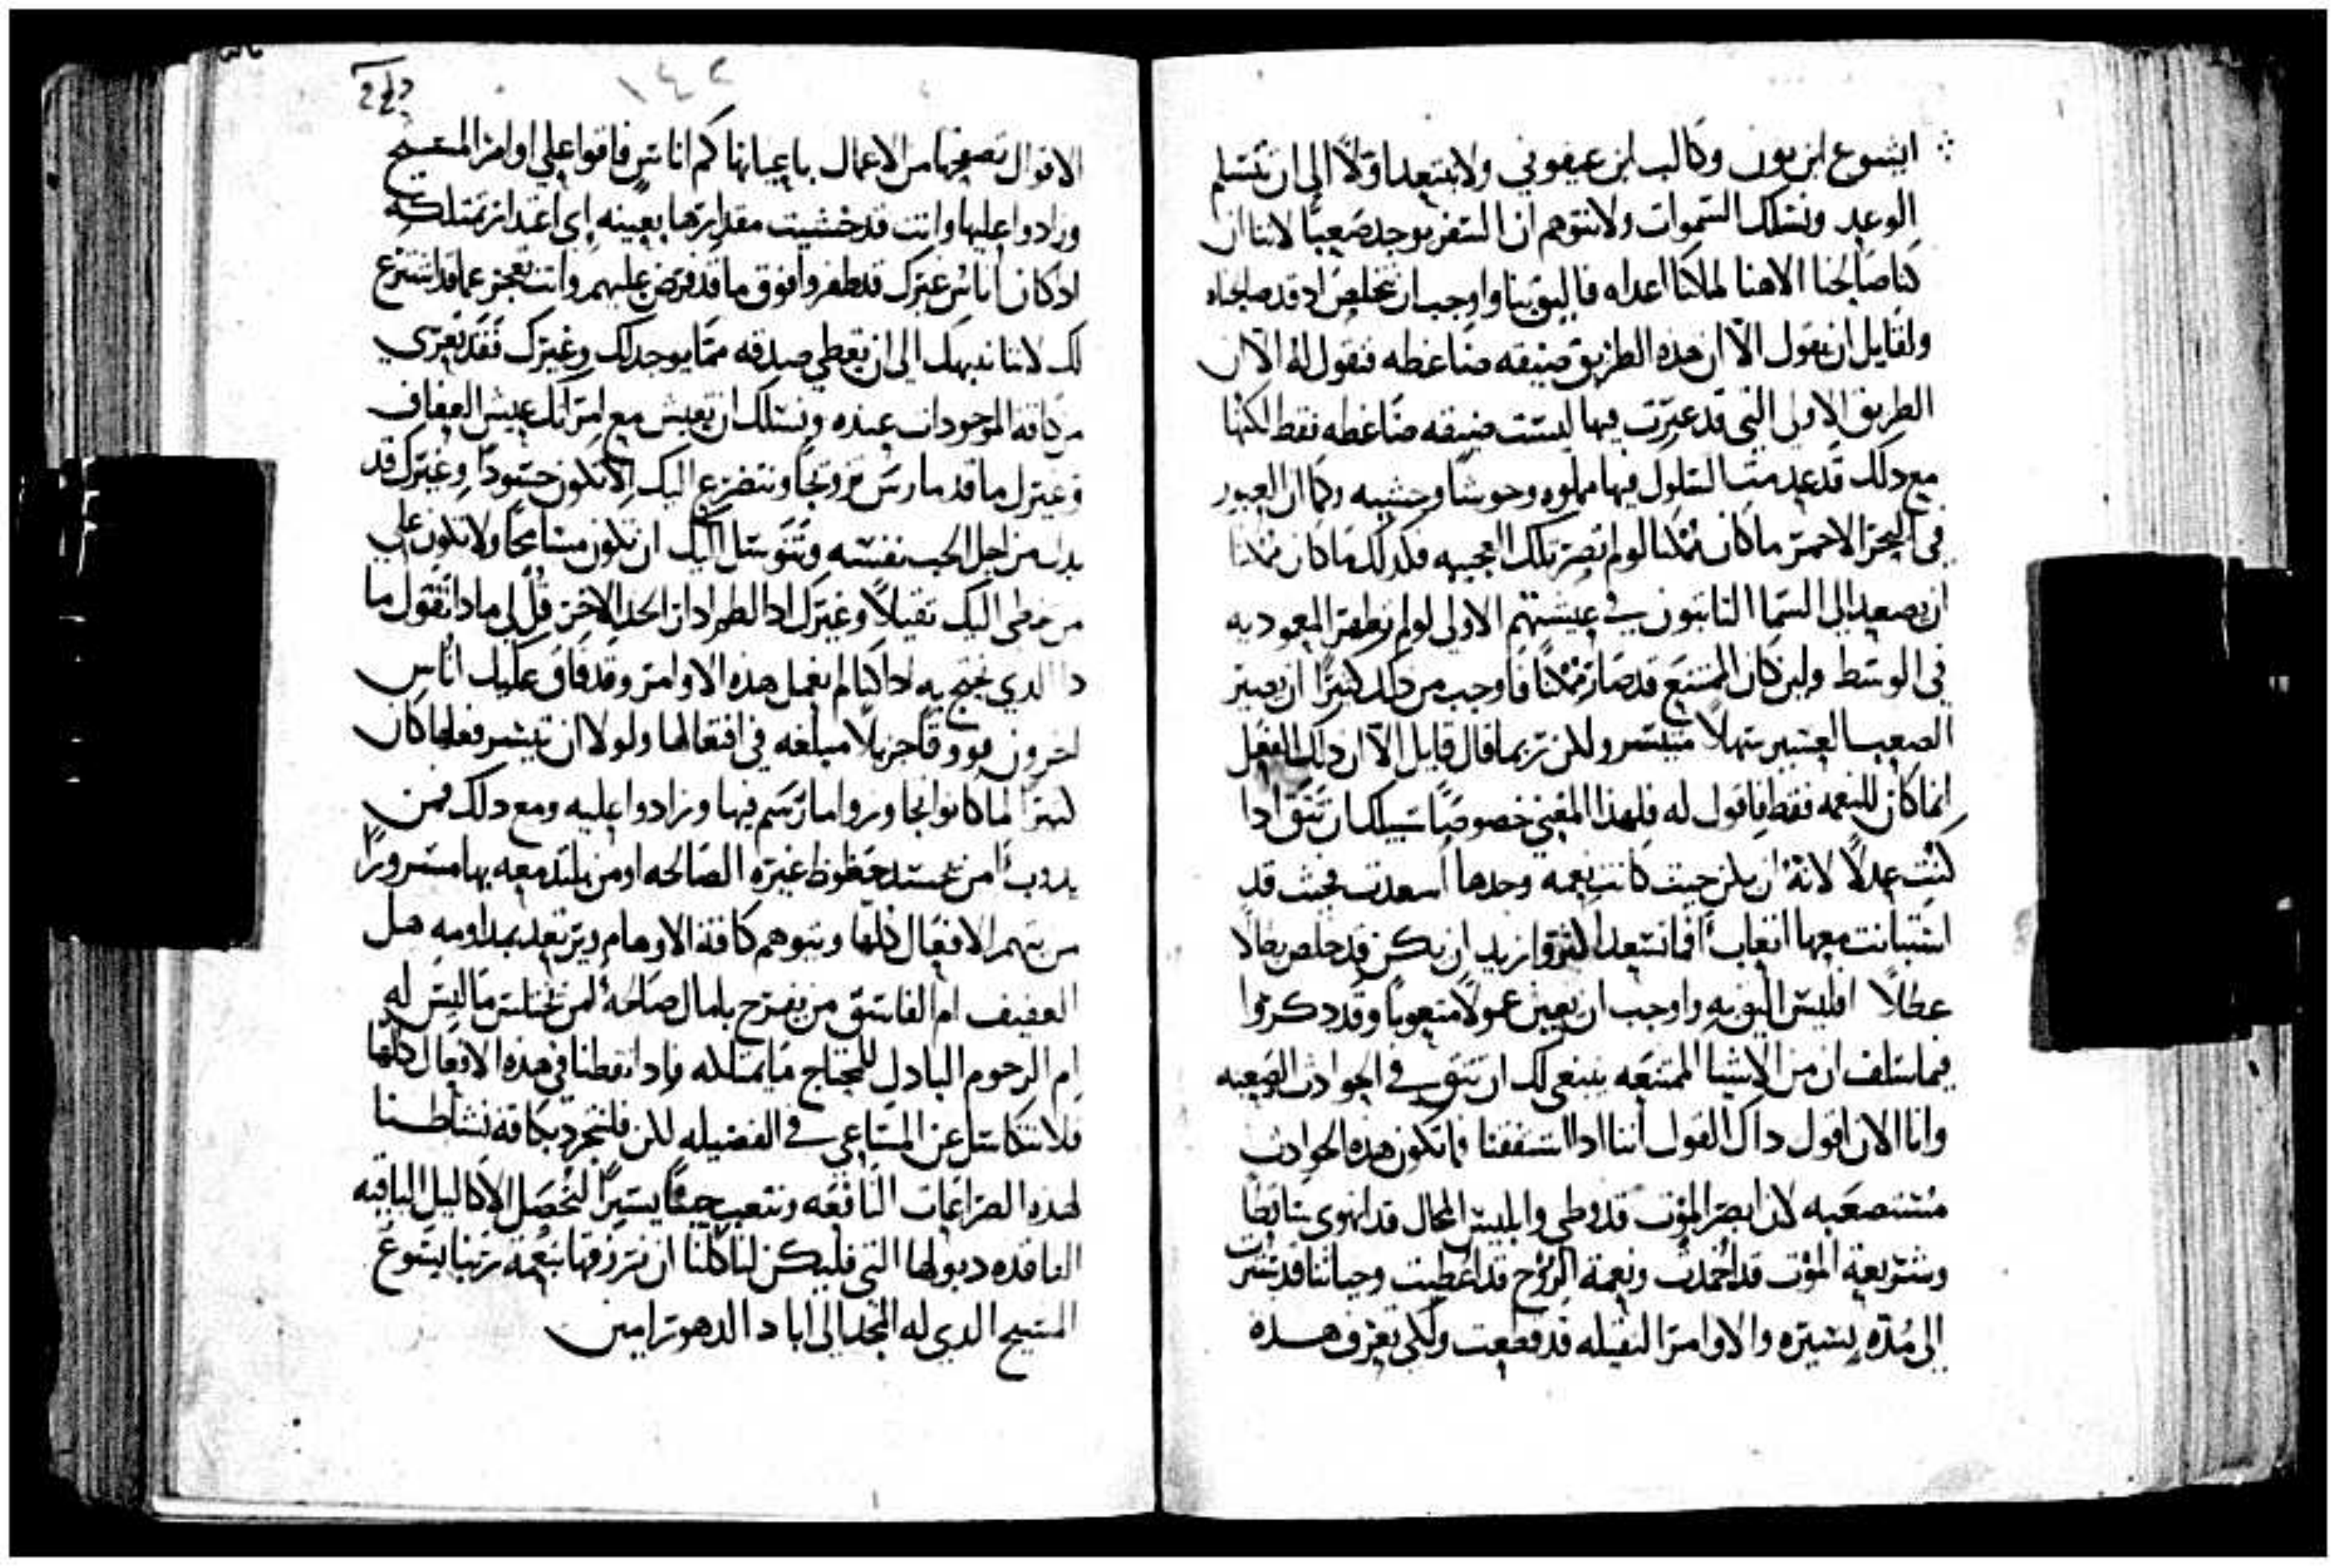 ايشوع ابن نون وكالب ابن يفوني ولا تبتعد اولًا الى ان تتسلم
الوعيد وتسلك السموات ولا تتوهم ان السفر يوجد صعبًا لاننا ان
كنا صالحنا الاهنا لما كنا اعداه فاليق بنا واوجب ان نخلص اد قد صالحناه
ولقايل ان يقول الا ان هده الطريق ضيقه ضاغطه فنقول له الا ان
الطريق الاولى التي قد عبرت فيها ليست ضيقه ضاغطه فقط لكنها
مع دلك قد عدمت السلوك فيها مملوه وحوشًا وحشيه وكما ان العبور
في البحر الاحمر ما كان ممكنا لو لم تصر تلك العجيبه فكدلك ما كان ممكنا
ان يصعد الى السما التابتون في عيشتهم الاولى لو لم تظهر المعموديه
في الوسط ولين كان الممتنع قد صار ممكنًا فاوجب من دلك كثيرًا ان يصير
الصعب العسير سهلًا متيسر ولكن ربما قال قايل الا ان دلك الفعل
انما كان للنعمه فقط فاقول له فلهدا المعني خصوصيًا سبيلك ان تثق ادا
كنت عدلًا لانه ان يكن حيث كانت نعمه وحدها اسعدت فحيث قد
استبانت معها اتعاب افما تسعد اكثر وازيد ان يكن قد خلص بطالًا
عطالًا افليس اليق به واوجب ان يعين عمولًا متعوبًا وقد دكروا
فيما سلف ان من الاشيا الممتنعه ينبغي لك ان تثق في الحوادث الصعبه
وانا الان اقول داك القول اننا ادا استفقنا فما تكون هده الحوادث
مستصعبه لان ابصر الموت قد وطي وابليس المحال قد انهوى ساقطًا
وشريعة الموت قد اخمدت ونعمة الروح قد اعطيت وحياتنا قد
الى مدة يسيره والاوامر الثقيله قد قطعت ولكي تعرف هده
١٤٢
الاقوال تصفحها من الاعمال باعيانها كم اناس فاقوا على اوامر المسيح
وزادوا عليها وانت قد خشيت مقدارها بعينه اي اعتدار تمتلكه
اد كان اناس غيرك قد طفروا فوق ما قد فرض عليهم وانت تعجز عما قد اشترع
لك لاننا ننبهك الى ان تعطي صدقه مما يوجد لك وغيرك فقد تعرى
من كافة الموجودات عنده ونسلك ان تعيش مع امراتك عيش العفاف
وغيرك ما قد مارس تزوجًا ونتضرع اليك الا تكون حسودًا وغيرك قد
بدل من اجل الحب نفسه ونتوسل اليك ان تكون مسامحًا ولا تكون على
من خطى اليك ثقيلًا وغيرك ادا لطم ادار الحد الاخر قل لي مادا نقول ما
دا الدي نحتج به اداكنا لم نعمل هده الاوامر وقد فاق عليك اناس
اخرون فووقًا جزيلًا مبلغه في افتعالها ولولا ان تيسر فعلها كان
كثيرًا لما كانوا تجاوزوا ما رسم فيها وزادوا عليه ومع دلك فمن
يدوب امن يحسد حظوظ غيره الصالحه او من يلتد معه بها مسرورًا
من يتهم الافعال كلها ويتوهم كافة الاوهام ويرتعد بمداومه هل
العفيف ام الفاسق من يفرح بامال صالحه امن يختلس ما ليس له
ام الرحوم البادل للمحتاج ما يمتلكه فاد قد تفطنا في هده الاقوال كلها
فلا نتكاسل عن المساعي في الفضيله لكن فلنتجرد بكافة نشاطنا
لهده الصراعات النافعه ونتعب حينًا يسيرًا لنحصل الاكاليل الباقيه
الفاقده دبولها التي فليكن لنا كلنا ان نرزقها بنعمة ربنا يسوع
المسيح الدي له المجد الى اباد الدهور امين